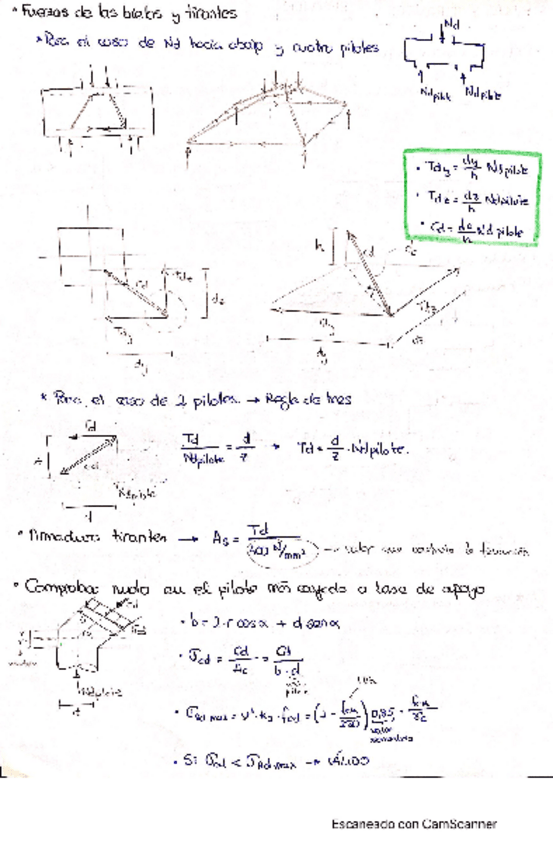 • Fuerzas de las bielas y tirantes
* Para el caso de Nd hacia abajo y cuatro pilotes
Nd
Ndpilote Ndpilote
• Tdy = dy/h Ndpilote
• Tdz = dz/h Ndpilote
• Cd = dc/h Ndpilote
Cd
Tdz
dz
Tdy
dy
h
Cd
Tdy
Tdz
dy
dz
* Para el caso de 2 pilotes → Regla de tres
Td
Cd
Ndpilote
d
Td/Ndpilote = d/z → Td = d/z · Ndpilote.
• Armadura tirantes → As = Td/400 N/mm²
• Comprobar nudo en el pilote más cargado o base de apoyo
Cd
Ndpilote
• b = 2·r cosα + d senα
• σcd = Cd/Ac = Cd/b·d
pilote
• σRd,max = ν'·k2·fcd = (1 - fck/250) 0,85 · fck/γc
valor
• Si σcd < σRd,max → VÁLIDO
Escaneado con CamScanner